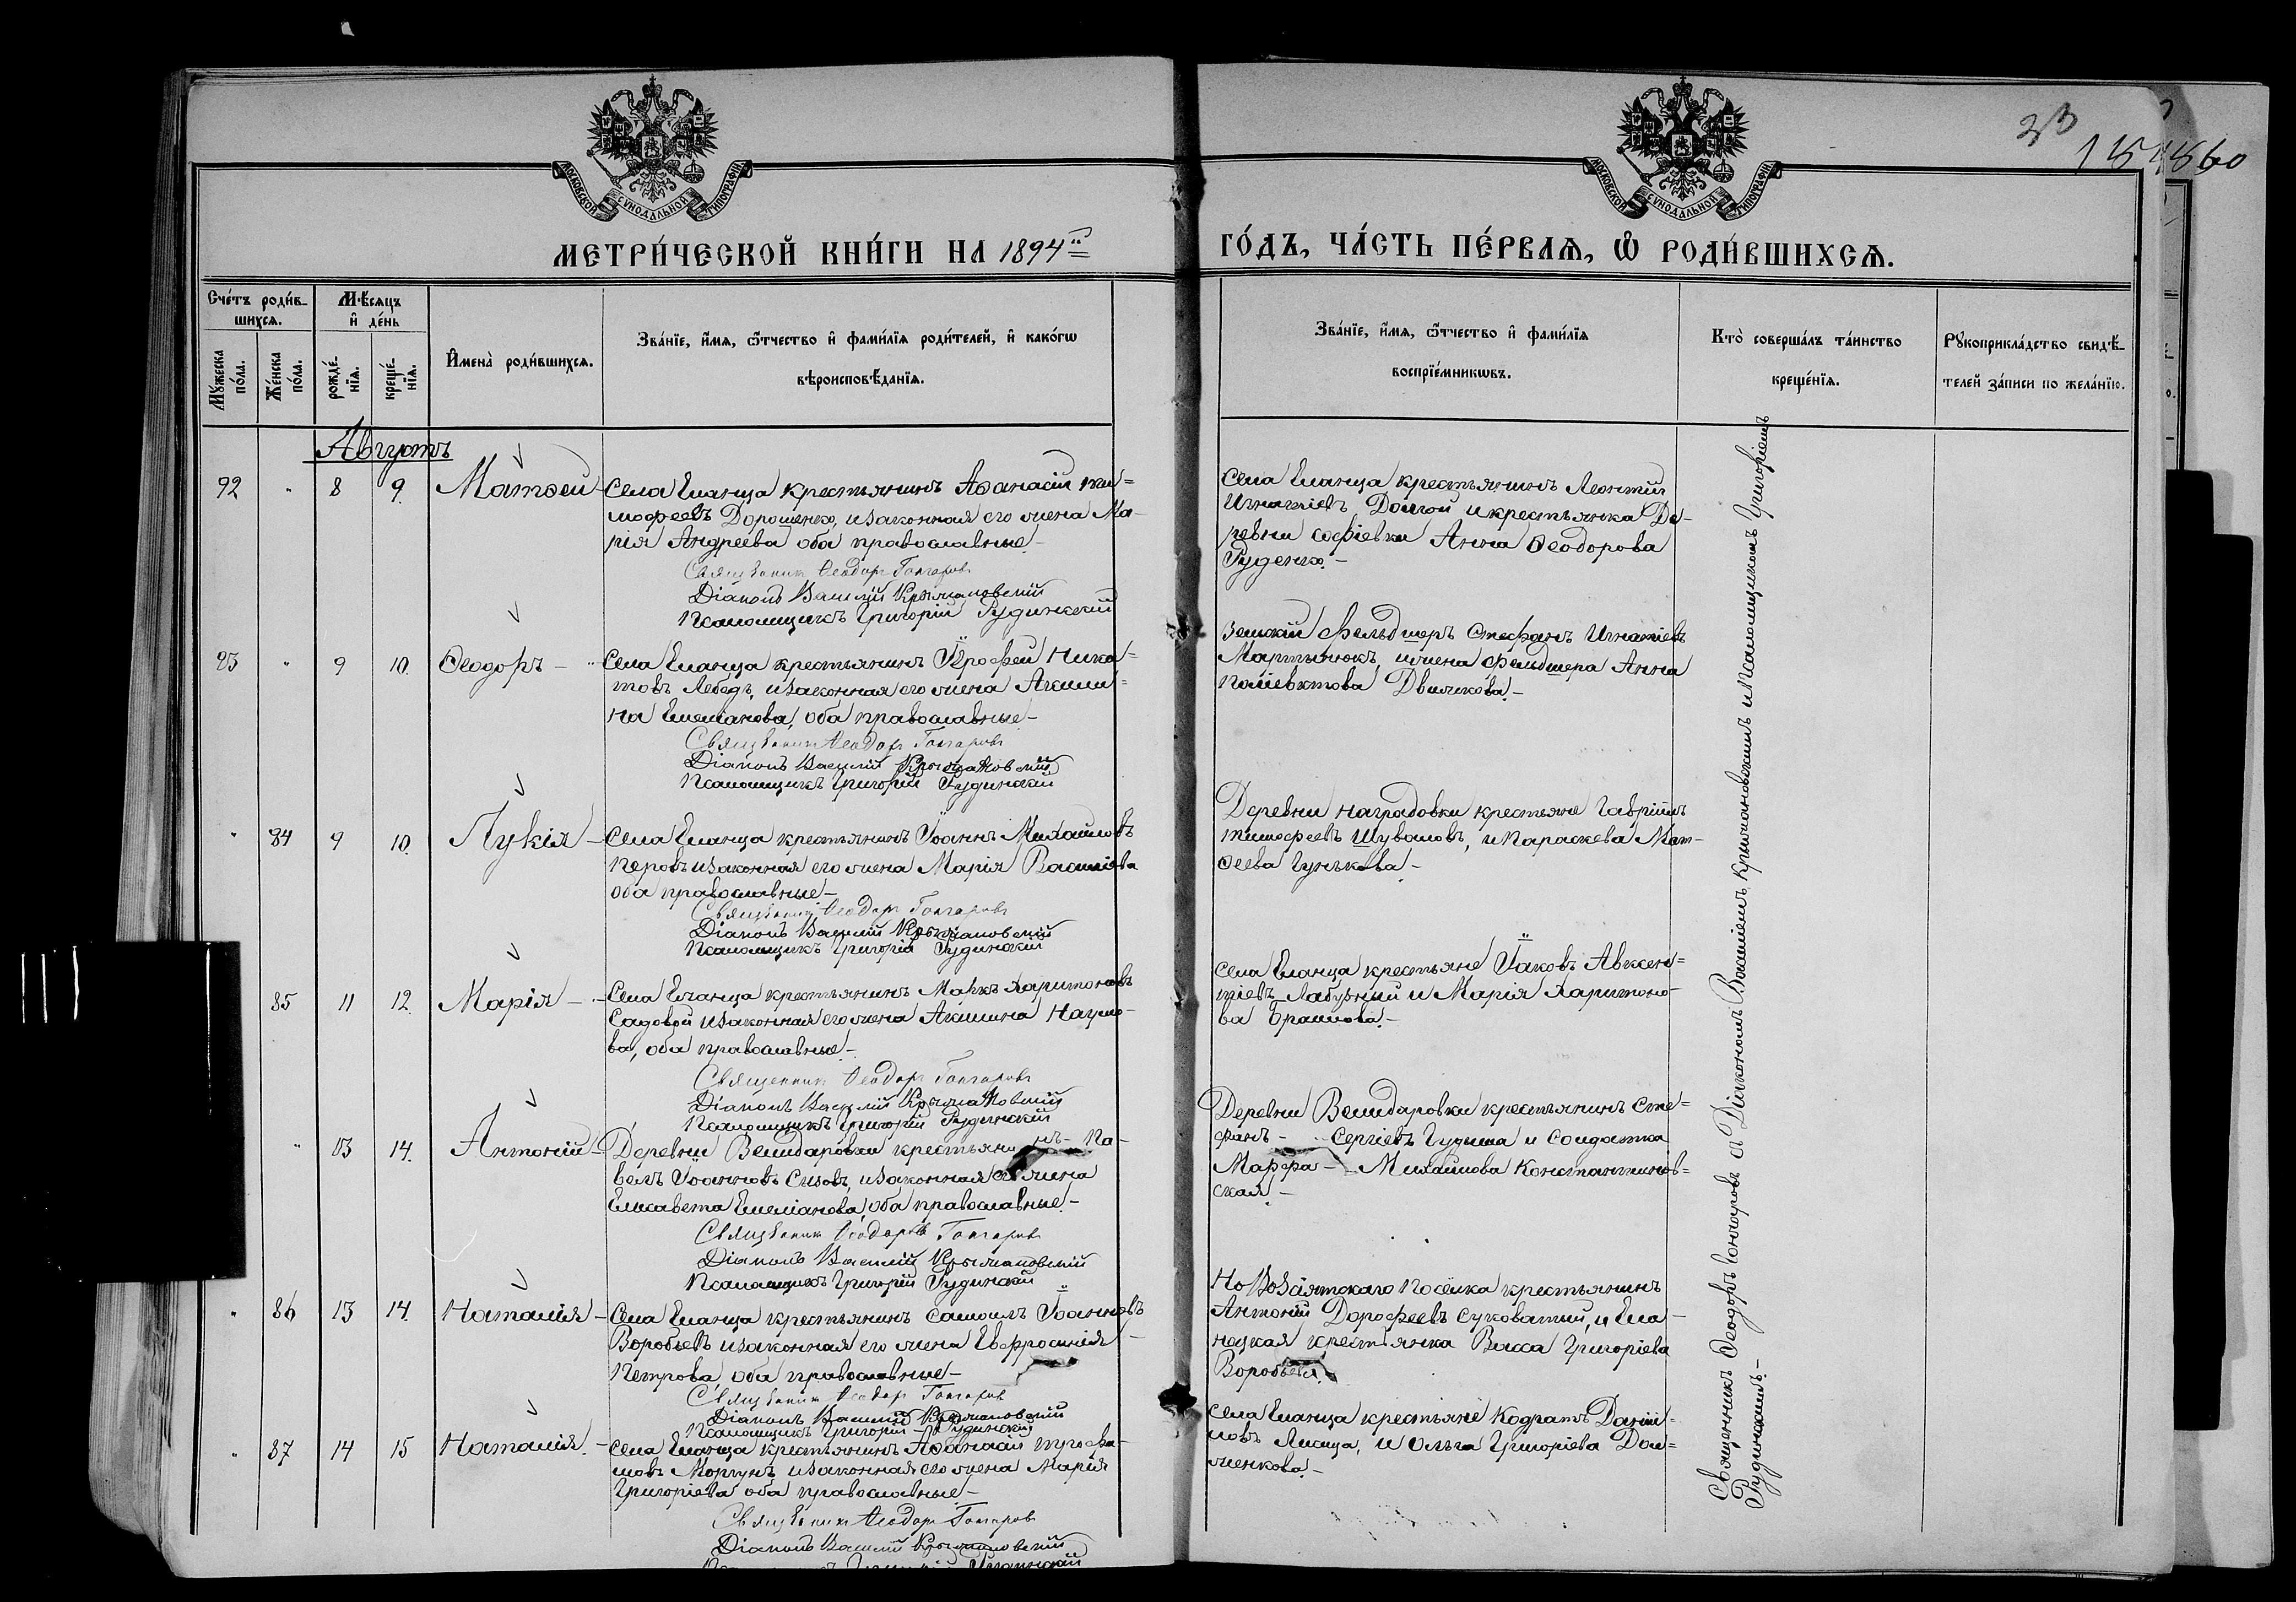 33
154860
МОСКОВСКОЙ СѴНОДАЛЬНОЙ ТИПОГРАФІИ
МОСКОВСКОЙ СѴНОДАЛЬНОЙ ТИПОГРАФІИ
МЕТРИ́ЧЕСКОЙ КНИ́ГИ НА 1894й ГО́ДЪ, ЧА́СТЬ ПЕ́РВАѦ, Ѽ РОДИ́ВШИХСѦ.
Сче́тъ роди́в-
шихсѧ.
Мѣ́сѧцъ
и҆ де́нь
Мꙋ́жеска
по́ла.
Же́нска
по́ла.
рожде́-
нїѧ.
креще́-
нїѧ.
И҆мена̀ роди́вшихсѧ.
Зва́нїе, и҆́мѧ, ѻ҆́тчество и҆ фами́лїѧ роди́телей, и҆ како́гѡ
вѣроисповѣ́данїѧ.
Зва́нїе, и҆́мѧ, ѻ҆́тчество и҆ фами́лїѧ
воспрїе́мникѡвъ.
Кто̀ соверша́лъ та́инство
креще́нїѧ.
Рꙋкоприкла́дство свидѣ́-
телей за́писи по жела́нїю.
Августъ
92 " 8 9. Матѳей - Села Еланца крестьянинъ Аѳанасій Тим=
мофеевъ Дорошенко, и законная его жена Ма-
рія Андреева оба православные -
Священникъ Ѳеодоръ Гончаровъ
Діаконъ Василій Крыжановскій
Псаломщикъ Григорій Рудинскій
Села Еланца крестьянинъ Леонтій
Игнатіевъ Долгой и крестьянка Де-
ревни Софіевки Анна Ѳеодорова
Руденко. -
93 " 9 10. Ѳеодоръ - Села Еланца крестьянинъ Ерофей Ники=
товъ Лебедь, и законная его жена Акили=
на Емеліанова, оба православные -
Священникъ Ѳеодоръ Гончаровъ
Діаконъ Василій Крыжановскій
Псаломщикъ Григорій Рудинскій
Земскій Фельдшеръ Стефанъ Игнатіевъ
Мартынюкъ, и жена фельдшера Анна
Поліевктова -
" 84 9 10. Лукія - Села Еланца крестьянинъ Іоаннъ Михайловъ
Перовъ и законная его жена Марія Василіева
оба православные -
Священникъ Ѳеодоръ Гончаровъ
Діаконъ Василій Крыжановскій
Псаломщикъ Григорій Рудинскій
Деревни Наградовки крестьяне Гавріилъ
Тимофеевъ Шуваловъ, и Параскева Мат-
ѳеева Гунькова -
85 11 12. Марія - Села Еланца крестьянинъ Маркъ Харитоновъ
Садовой и законная его жена Акилина Наумо-
ва, оба православные -
Священникъ Ѳеодоръ Гончаровъ
Діаконъ Василій Крыжановскій
Псаломщикъ Григорій Рудинскій
Села Еланца крестьяне Іаковъ Авксен=
тіевъ Лабузный и Марія Харитоно-
ва -
" 13 14. Антоній - Деревни Велидаровки крестьянинъ Па-
велъ Іоанновъ Сизовъ, и законная его жена
Елисавета Емеліанова, оба православные -
Священникъ Ѳеодоръ Гончаровъ
Діаконъ Василій Крыжановскій
Псаломщикъ Григорій Рудинскій
Деревни Велидаровки крестьянинъ Сте=
фанъ - Сергіевъ Гудыма и солдатка
Марфа - Михайлова Константинов=
ская -
" 86 13 14. Наталія - Села Еланца крестьянинъ Самоилъ Іоанновъ
Воробьевъ и законная его жена Евфросинія -
Петрова, оба православные -
Священникъ Ѳеодоръ Гончаровъ
Діаконъ Василій Крыжановскій
Псаломщикъ Григорій Рудинскій
посёлка крестьянинъ
Антоній Дорофеевъ Суковатый, и Ела-
нецкая крестьянка Васса Григоріева
Воробьева.
" 87 14 15 Наталія. - Села Еланца крестьянинъ Аѳанасій Трофи-
мовъ Моргунъ и законная его жена Марія
Григоріева оба православные -
Священникъ Ѳеодоръ Гончаровъ
Діаконъ Василій Крыжановскій
Села Еланца крестьяне Кодратъ Даніи-
ловъ Лисица, и Ольга Григоріева Дол=
женкова. -
Священникъ Ѳеодоръ Гончаровъ съ Діакономъ Василіемъ Крыжановскимъ и Псаломщикомъ Григоріемъ
Рудинскимъ. -